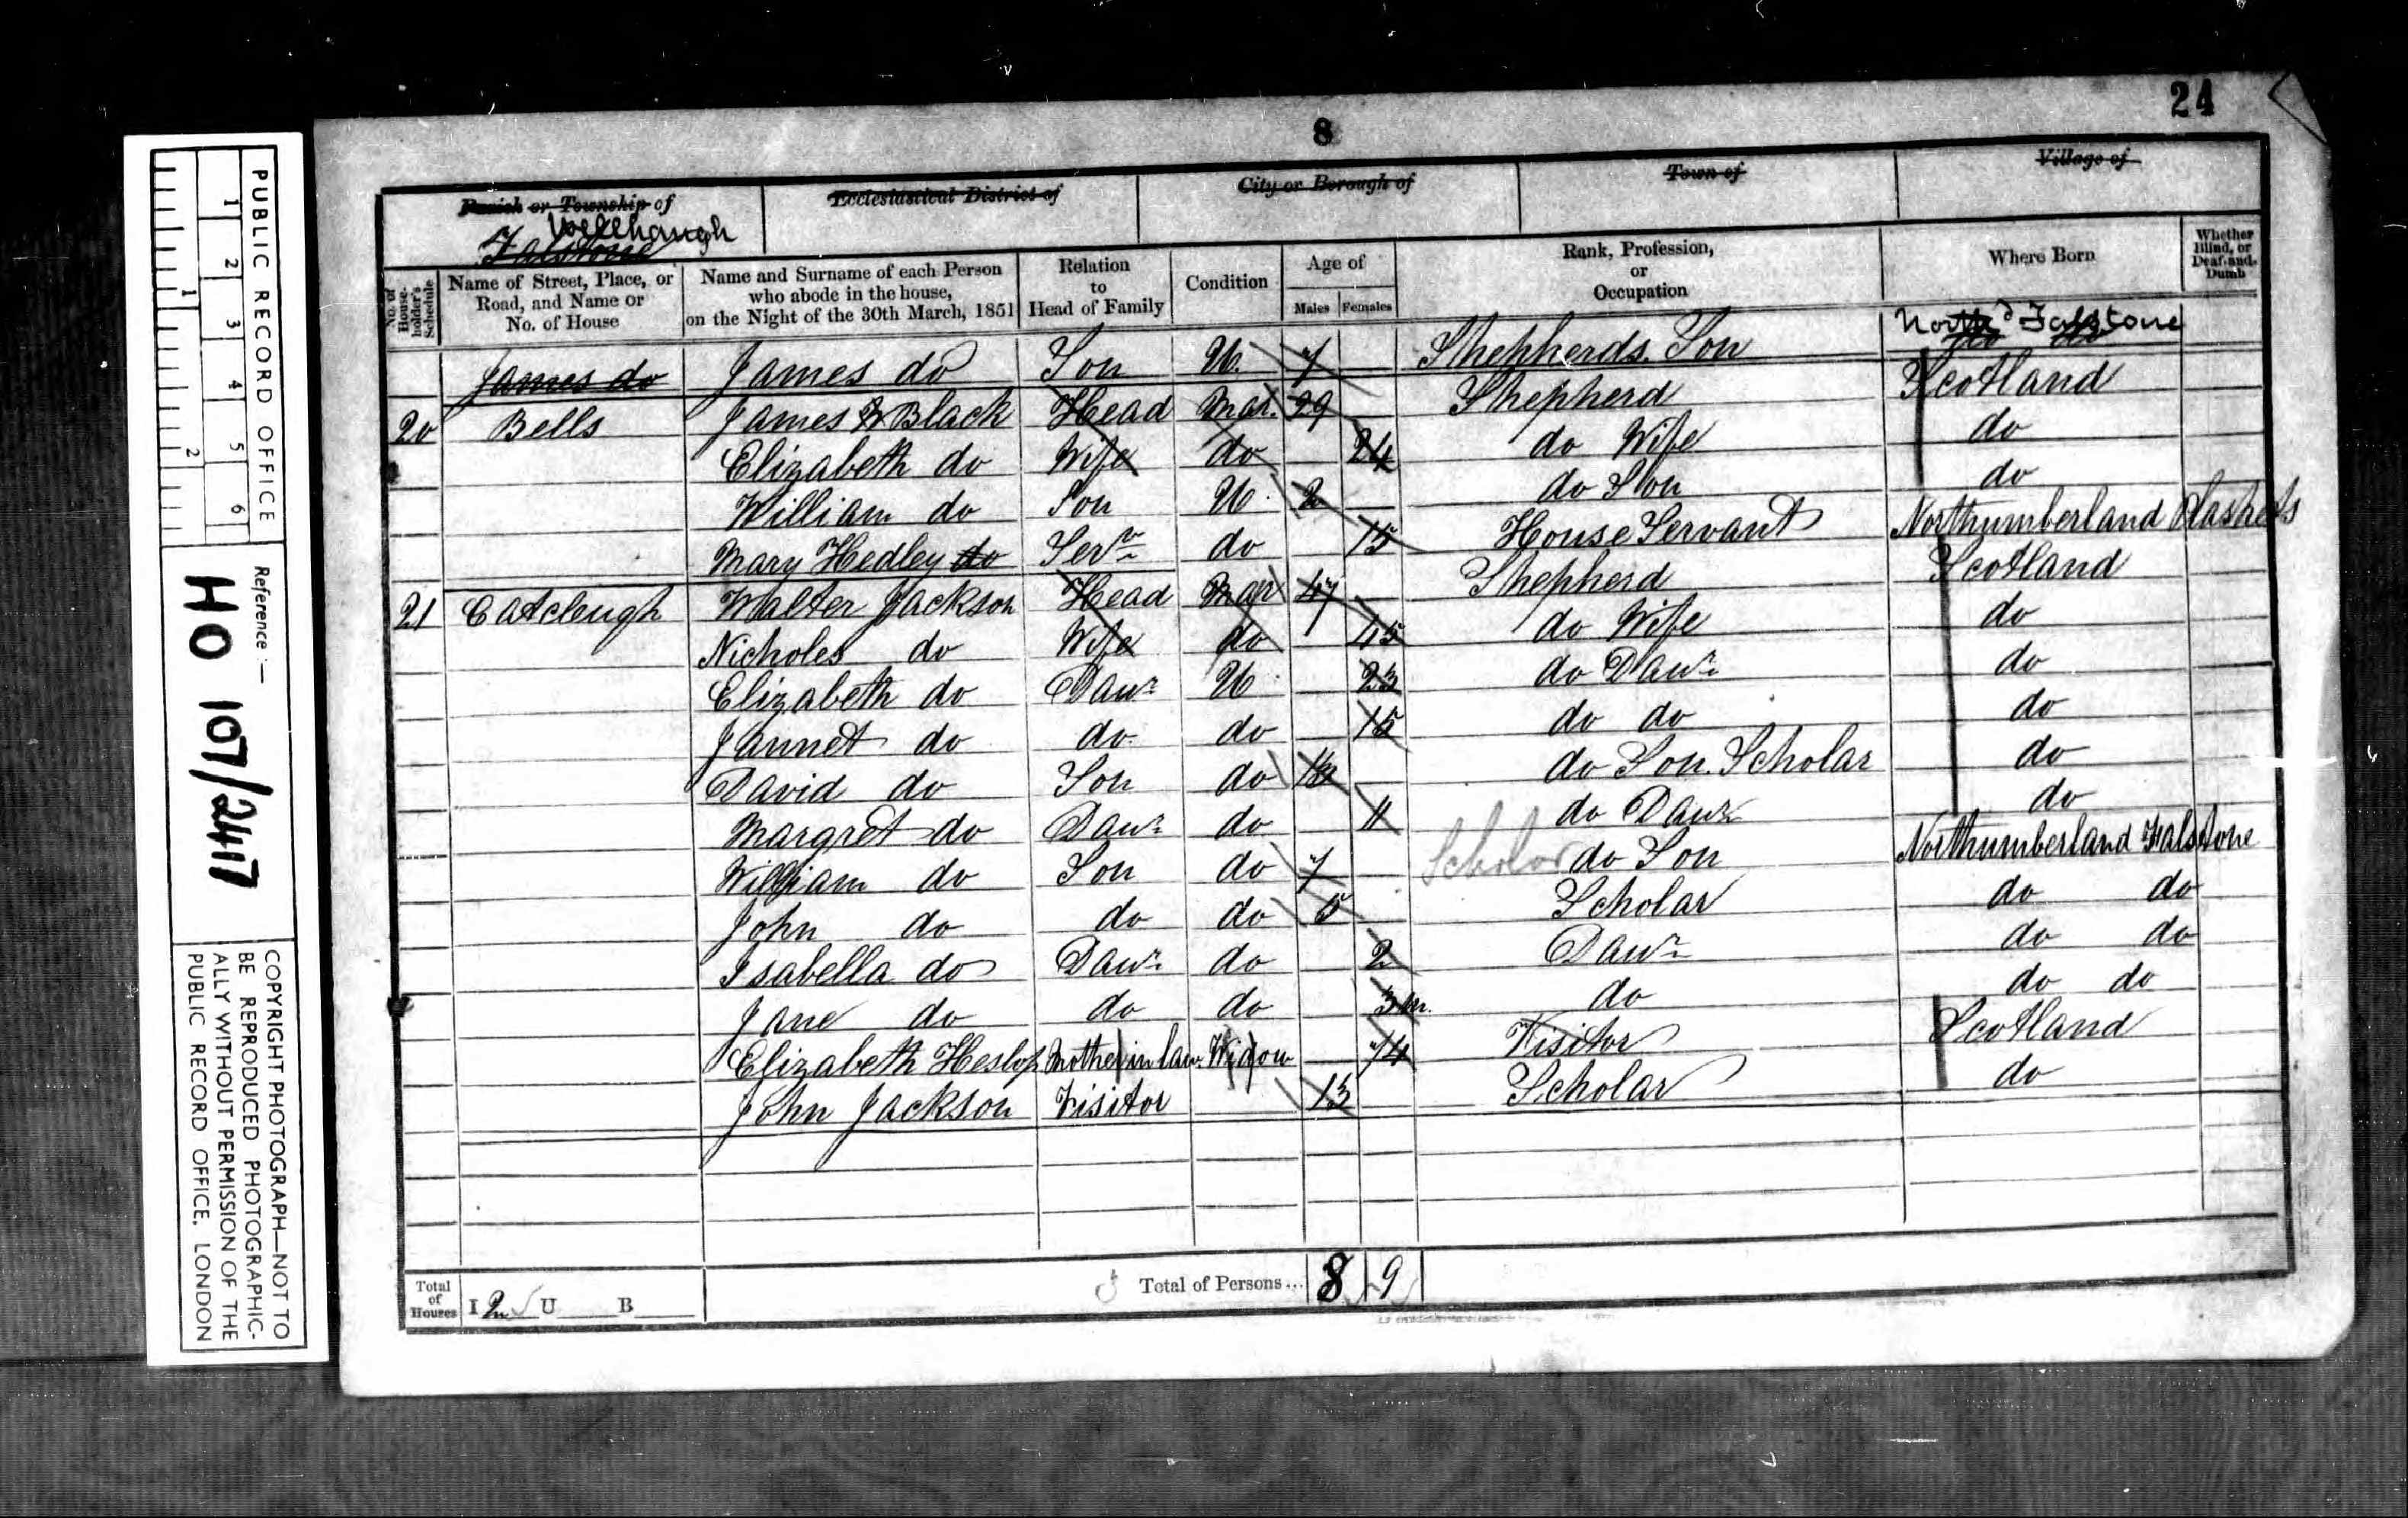 24
8
Parish or Township of
Wellhaugh
Falstone
Ecclesiastical District of
City or Borough of
Town of
Village of
No. of House-holder's Schedule
Name of Street, Place, or Road, and Name or No. of House
Name and Surname of each Person who abode in the house, on the Night of the 30th March, 1851
Relation to Head of Family
Condition
Age of
Males Females
Rank, Profession, or Occupation
Where Born
Whether Blind, or Deaf-and-Dumb
James do James do Son U. 7 Shepherds Son Northd Falstone
20 Bells James W Black Head Mar. 29 Shepherd Scotland
Elizabeth do Wife do 24 do Wife do
William do Son U 2 do Son do
Mary Hedley do Servt do 15 House Servant Northumberland Plashets
21 Catcleugh Walter Jackson Head Mar 47 Shepherd Scotland
Nicholes do Wife do 45 do Wife do
Elizabeth do Daur U 23 do Daur do
Jannet do do do 15 do do do
David do Son do do Son Scholar do
Margret do Daur do 11 do Daur do
William do Son do 7 Scholar do Son Northumberland Falstone
John do do do 5 Scholar do do
Isabella do Daur do 2 Daur do do
Jane do do do 3 m. do do do
Elizabeth Heslop Mother in law Widow 74 Visitor Scotland
John Jackson Visitor 13 Scholar do
Total of Houses I 2 U B
Total of Persons... 8 9
PUBLIC RECORD OFFICE
1 2 3 4 5 6
1 2
Reference:—
HO 107/2417
COPYRIGHT PHOTOGRAPH—NOT TO
BE REPRODUCED PHOTOGRAPHIC-
ALLY WITHOUT PERMISSION OF THE
PUBLIC RECORD OFFICE, LONDON